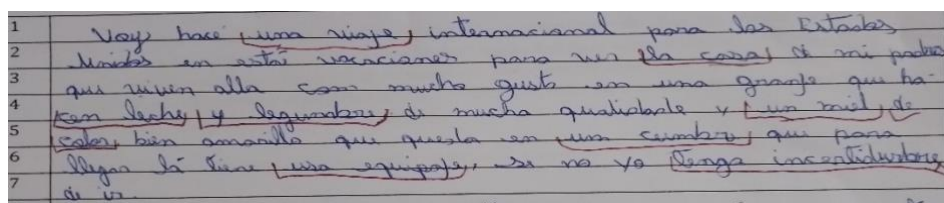 1 Voy hace una viaje internacional para los Estados
2 Unidos en está vacaciones para ver la casa de mi padres
3 que viven alla com mucho gusto en una granje que ha-
4 cen leche y legumbres de mucha qualidade y un miel de
5 color bien amarillo que queda en um cumbre que para
6 llegar lá tiene usa equipaje, se no yo tenga incertidumbre
7 de ir.